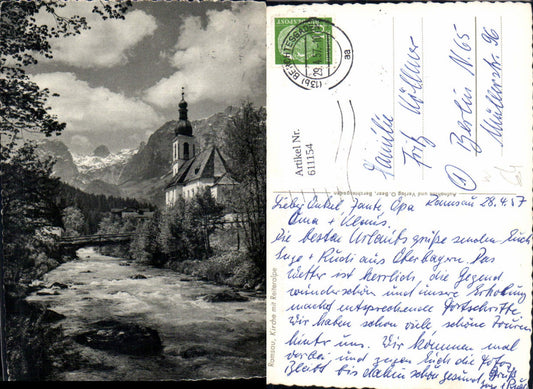 Ramsau, Kirche mit Reiteralpe
DEUTSCHE BUNDESPOST
(13b) BERCHTESGADEN
29.
aa
Artikel Nr.
611154
Familie
Fritz Köllner
Berlin N. 65
Müllerstr. 96
Aufnahme und Verlag G. Baer, Berchtesgaden
Ramsau, 28.4.57
Lieber Onkel, Tante, Opa
Oma + Klaus.
Die besten Urlaubsgrüße senden Euch
Inge + Rudi aus Oberbayern. Das
Wetter ist herrlich, die Gegend
wunderschön und unsere Erholung
macht entsprechende Fortschritte
Wir haben schon viele, schöne Touren
hinter uns. Wir kommen mal
vorbei, und zeigen Euch die Fotos,
Bleibt bis dahin schön gesund, Gruß